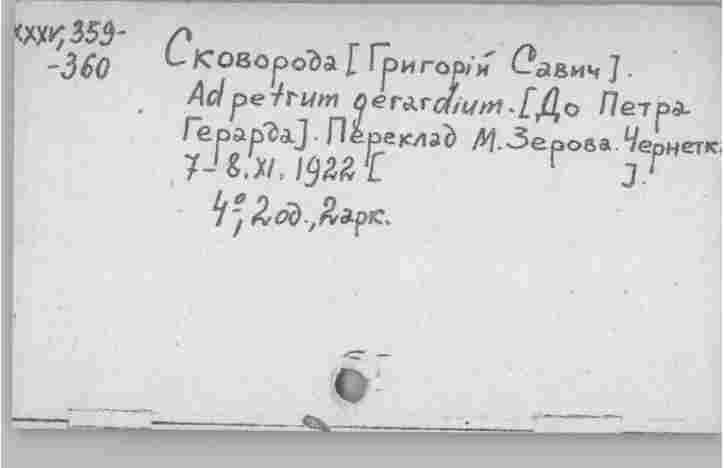 xxxv, 359-
-360
Сковорода [Григорій Савич].
Ad petrum gerardium. [До Петра
Герарда]. Переклад М. Зерова. Чернетк.
7-8. XI. 1922 [ ].
4°, 2 од., 2 арк.